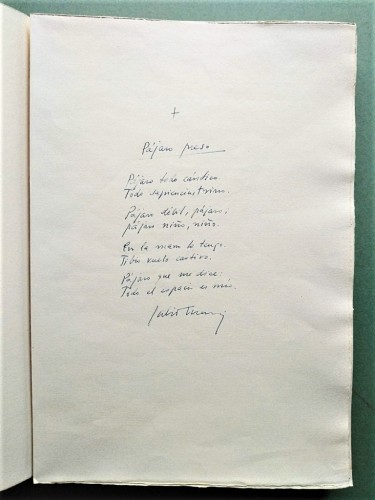 +
Pájaro preso
Pájaro todo cántico.
Todo
Pájaro débil, pájaro;
pájaro niño, niño.
En la mano lo tengo.
Tibio vuelo cautivo.
Pájaro que me dice:
Todo el espacio es mío.